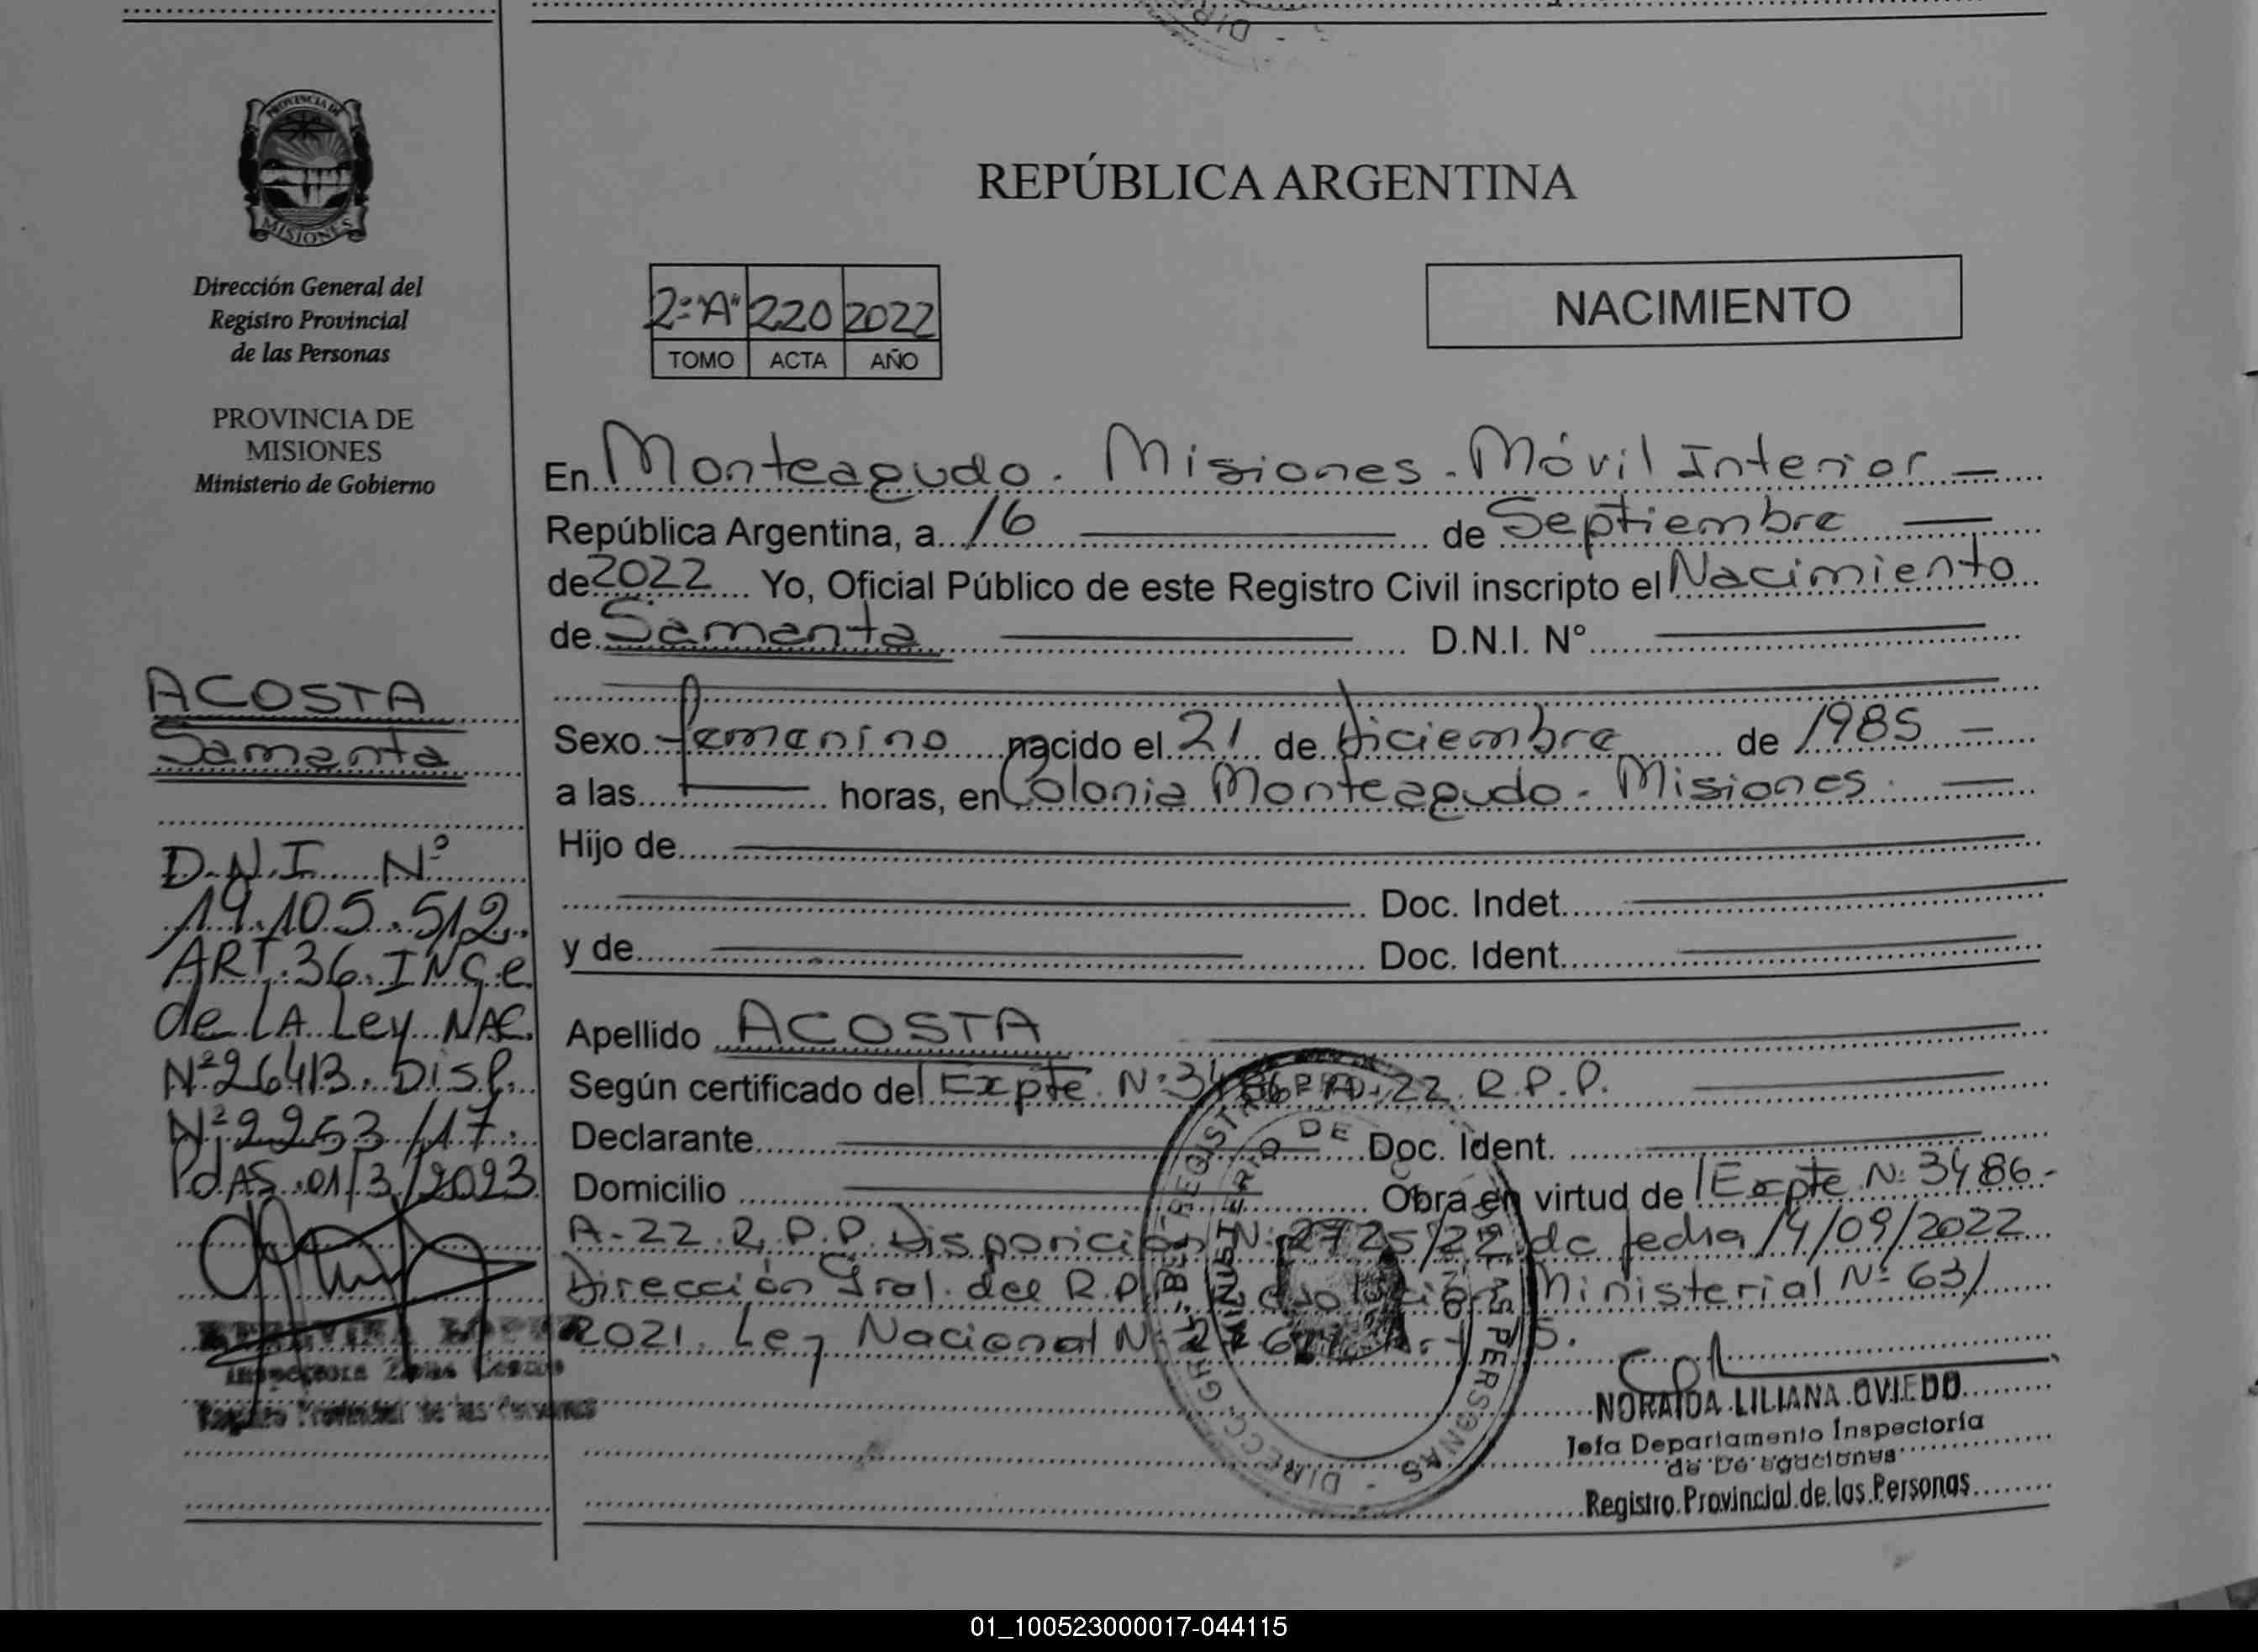 DIR
PROVINCIA DE
MISIONES
Dirección General del
Registro Provincial
de las Personas
PROVINCIA DE
MISIONES
Ministerio de Gobierno
ACOSTA
Samanta
D.N.I. Nº
19.105.512.
ART. 36. INC. e
de LA Ley NAC.
Nº 26413. Disp.
Nº 2253/17.
PdAS. 01/3/2023
Inspectora
Registro Provincial de las Personas
REPÚBLICA ARGENTINA
2º "A" 220 2022
TOMO ACTA AÑO
NACIMIENTO
En Monteagudo. Misiones - Móvil Interior —
República Argentina, a 16 — de Septiembre —
de 2022 Yo, Oficial Público de este Registro Civil inscripto el Nacimiento
de Samanta — D.N.I. Nº —
Sexo femenino nacido el 21 de diciembre de 1985 —
a las — horas, en Colonia Monteagudo - Misiones. —
Hijo de —
— Doc. Indet. —
y de — Doc. Ident. —
Apellido ACOSTA —
Según certificado del Expte. Nº 3486-A-22. R.P.P. —
Declarante — Doc. Ident. —
Domicilio — Obra en virtud de Expte Nº 3486-
A-22. R.P.P. Disposición Nº 2725/22 de fecha 14/09/2022
Dirección Gral. del R.P.P. Ministerial Nº 631
2021. Ley Nacional Nº
DIRECC. GRAL. DEL REGISTRO DE LAS PERSONAS
MINISTERIO DE
NORAIDA LILIANA OVIEDO
Jefa Departamento Inspectoría
de Delegaciones
Registro Provincial de las Personas
01_100523000017-044115